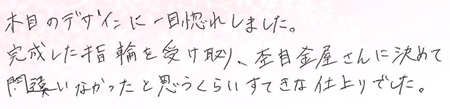 木目のデザインに一目惚れしました。
完成した指輪を受け取り、杢目金屋さんに決めて
間違いなかったと思うくらいすてきな仕上りでした。